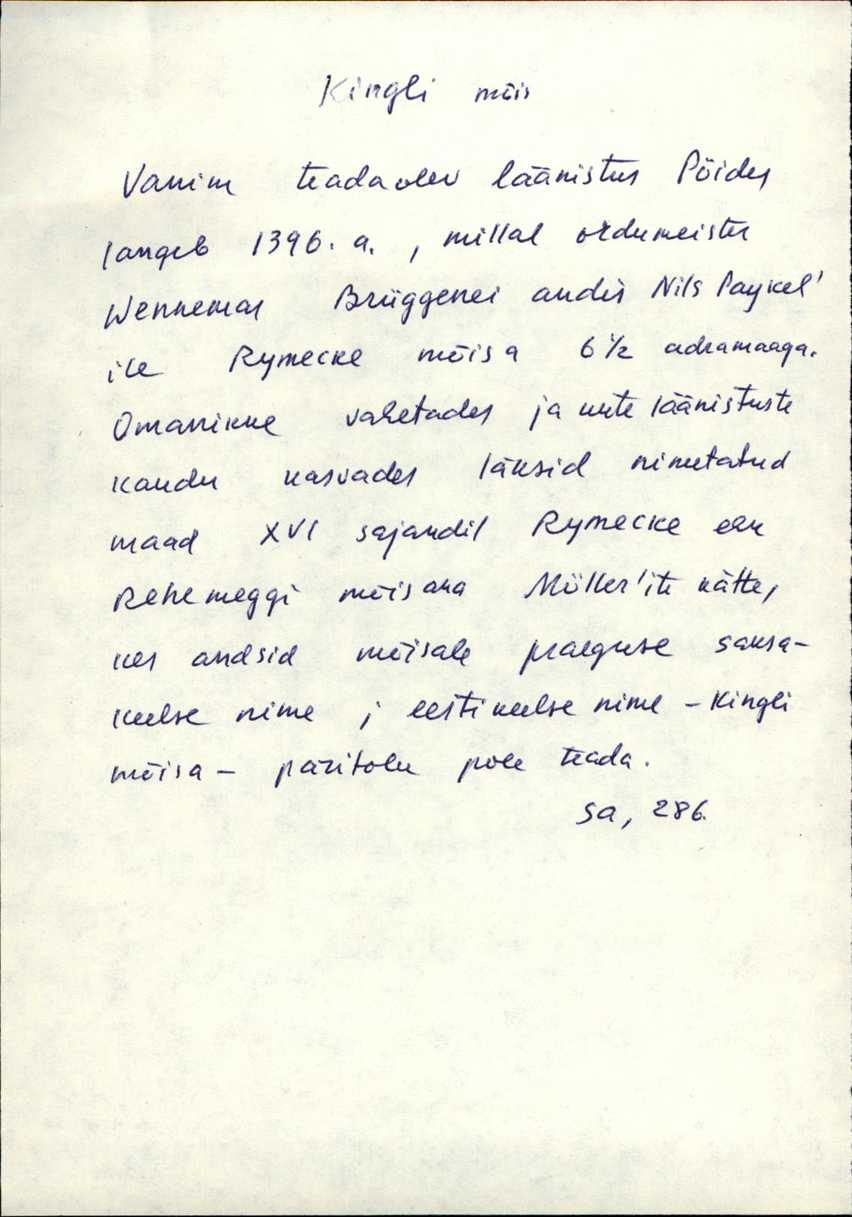 Kingli mõis
Vanim teadaolev läänistus Pöides
langeb 1396. a., millal ordumeister
Wennemar Brüggenei andis Nils Paykel'
ile Rymecke mõisa 6 1/2 adramaaga.
Omanikke vahetades ja uute läänistuste
kaudu kasvades läksid nimetatud
maad XVI sajandil Rymecke ehk
Rehemeggi mõisana Möller'ite kätte,
kes andsid mõisale praeguse saksa-
keelse nime; eestikeelse nime - Kingli
mõisa - päritolu pole teada.
Sa, 286.